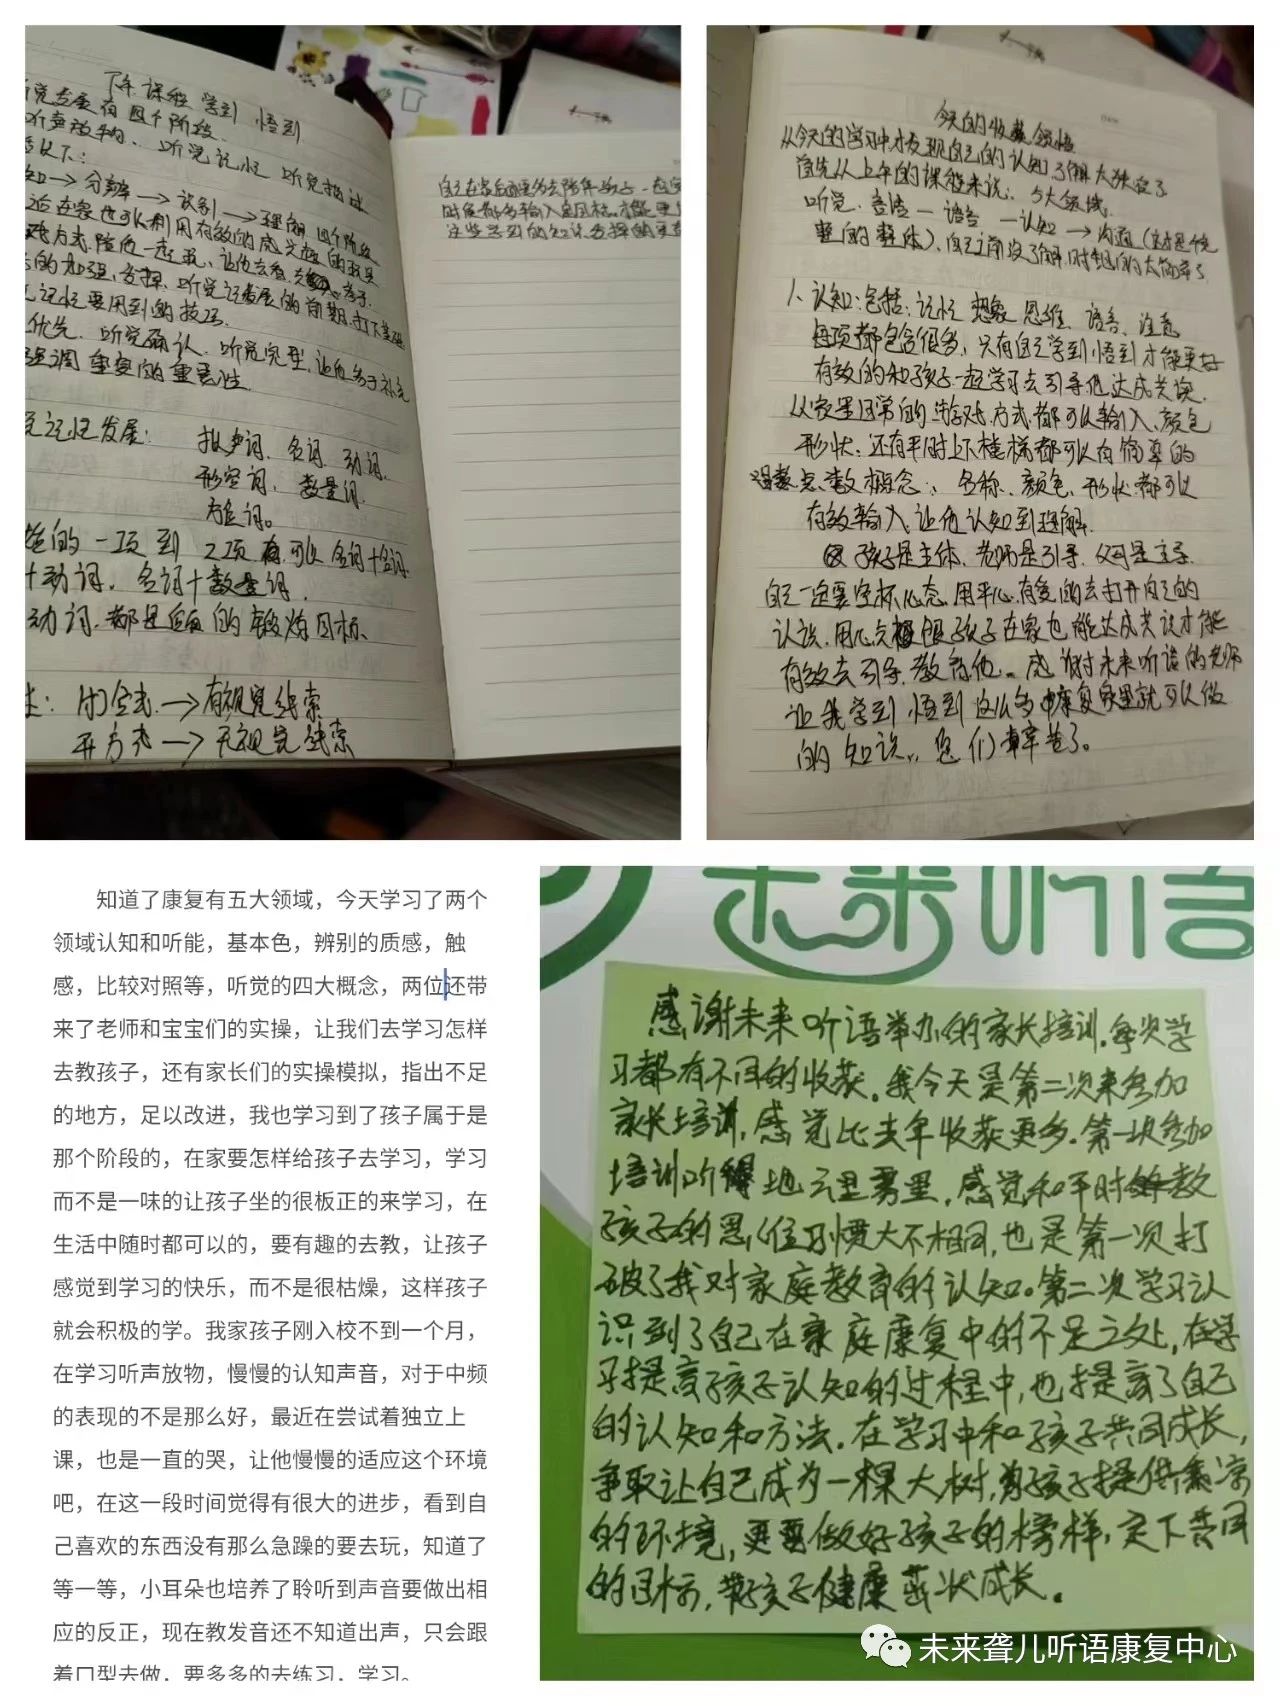 下午课程 学到 悟到
听觉发展有四个阶段
听声放物、听觉记忆 听觉描述
以下：
知→分辨→识别→理解 四个阶段
在家也可以利用有效的感兴趣的玩具
方式 陪他一起玩、让他去看
的加强、发挥、听觉记忆发展的前期、打下基础
记忆要用到的技巧、
优先、听觉确认、听觉完型、让他多于补充
强调 重复的重要性
记忆发展： 拟声词、名词、动词、
形容词、数量词、
方位词。
的一项到2项 可以名词十名词
十动词、名词十数量词、
动词、都是 的锻炼目标、
闭合式→有视觉线索
开方式→无视觉线索
时候都多输入 目标、才能更
这些学到的知识发挥的更
今天的收获领悟
从今天的学习中才发现自己的认知了解太狭窄了
首先从上午的课程来说：5大领域、
听觉、言语－语言－认知→沟通（这才是个完
整的整体）、自己之前没了解、时 的太简单了
1、认知：包括：记忆 想象 思维、语言、注意
每项都包含很多、只有自己学到悟到才能更好
有效的和孩子一起学习去引导他达成共识、
从家里日常的 方式都可以输入、颜色
形状：还有平时上下楼梯都可以有简单的
点数概念、名称、颜色、形状都可以
有效输入、让他认知到理解、
孩子是主体、老师是引导、父母是主导
自己一定要空杯心态、用平心、有爱的去打开自己的
认识、用心 跟孩子在家也能达成共识才能
有效去引导、教育他。感谢对未来听语的老师
让我学到 悟到 这么多 康复家里就可以做
的知识、您们辛苦了。
知道了康复有五大领域，今天学习了两个
领域认知和听能，基本色，辨别的质感，触
感，比较对照等，听觉的四大概念，两位还带
来了老师和宝宝们的实操，让我们去学习怎样
去教孩子，还有家长们的实操模拟，指出不足
的地方，足以改进，我也学习到了孩子属于是
那个阶段的，在家要怎样给孩子去学习，学习
而不是一味的让孩子坐的很板正的来学习，在
生活中随时都可以的，要有趣的去教，让孩子
感觉到学习的快乐，而不是很枯燥，这样孩子
就会积极的学。我家孩子刚入校不到一个月，
在学习听声放物，慢慢的认知声音，对于中频
的表现的不是那么好，最近在尝试着独立上
课，也是一直的哭，让他慢慢的适应这个环境
吧，在这一段时间觉得有很大的进步，看到自
己喜欢的东西没有那么急躁的要去玩，知道了
等一等，小耳朵也培养了聆听到声音要做出相
应的反正，现在教发音还不知道出声，只会跟
着口型去做，要多多的去练习，学习。
未来听语
感谢未来听语举办的家长培训，每次学
习都有不同的收获。我今天是第二次来参加
家长培训，感觉比去年收获更多。第一次参加
培训听得地云里雾里，感觉和平时教
孩子的思维习惯大不相同，也是第一次打
破了我对家庭教育的认知。第二次学习认
识到了自己在家庭康复中的不足之处，在学
习提高孩子认知的过程中，也提高了自己
的认知和方法。在学习中和孩子共同成长，
争取让自己成为一棵大树，为孩子提供乘凉
的环境，更要做好孩子的榜样，定下共同
的目标，带孩子健康茁壮成长。
未来聋儿听语康复中心